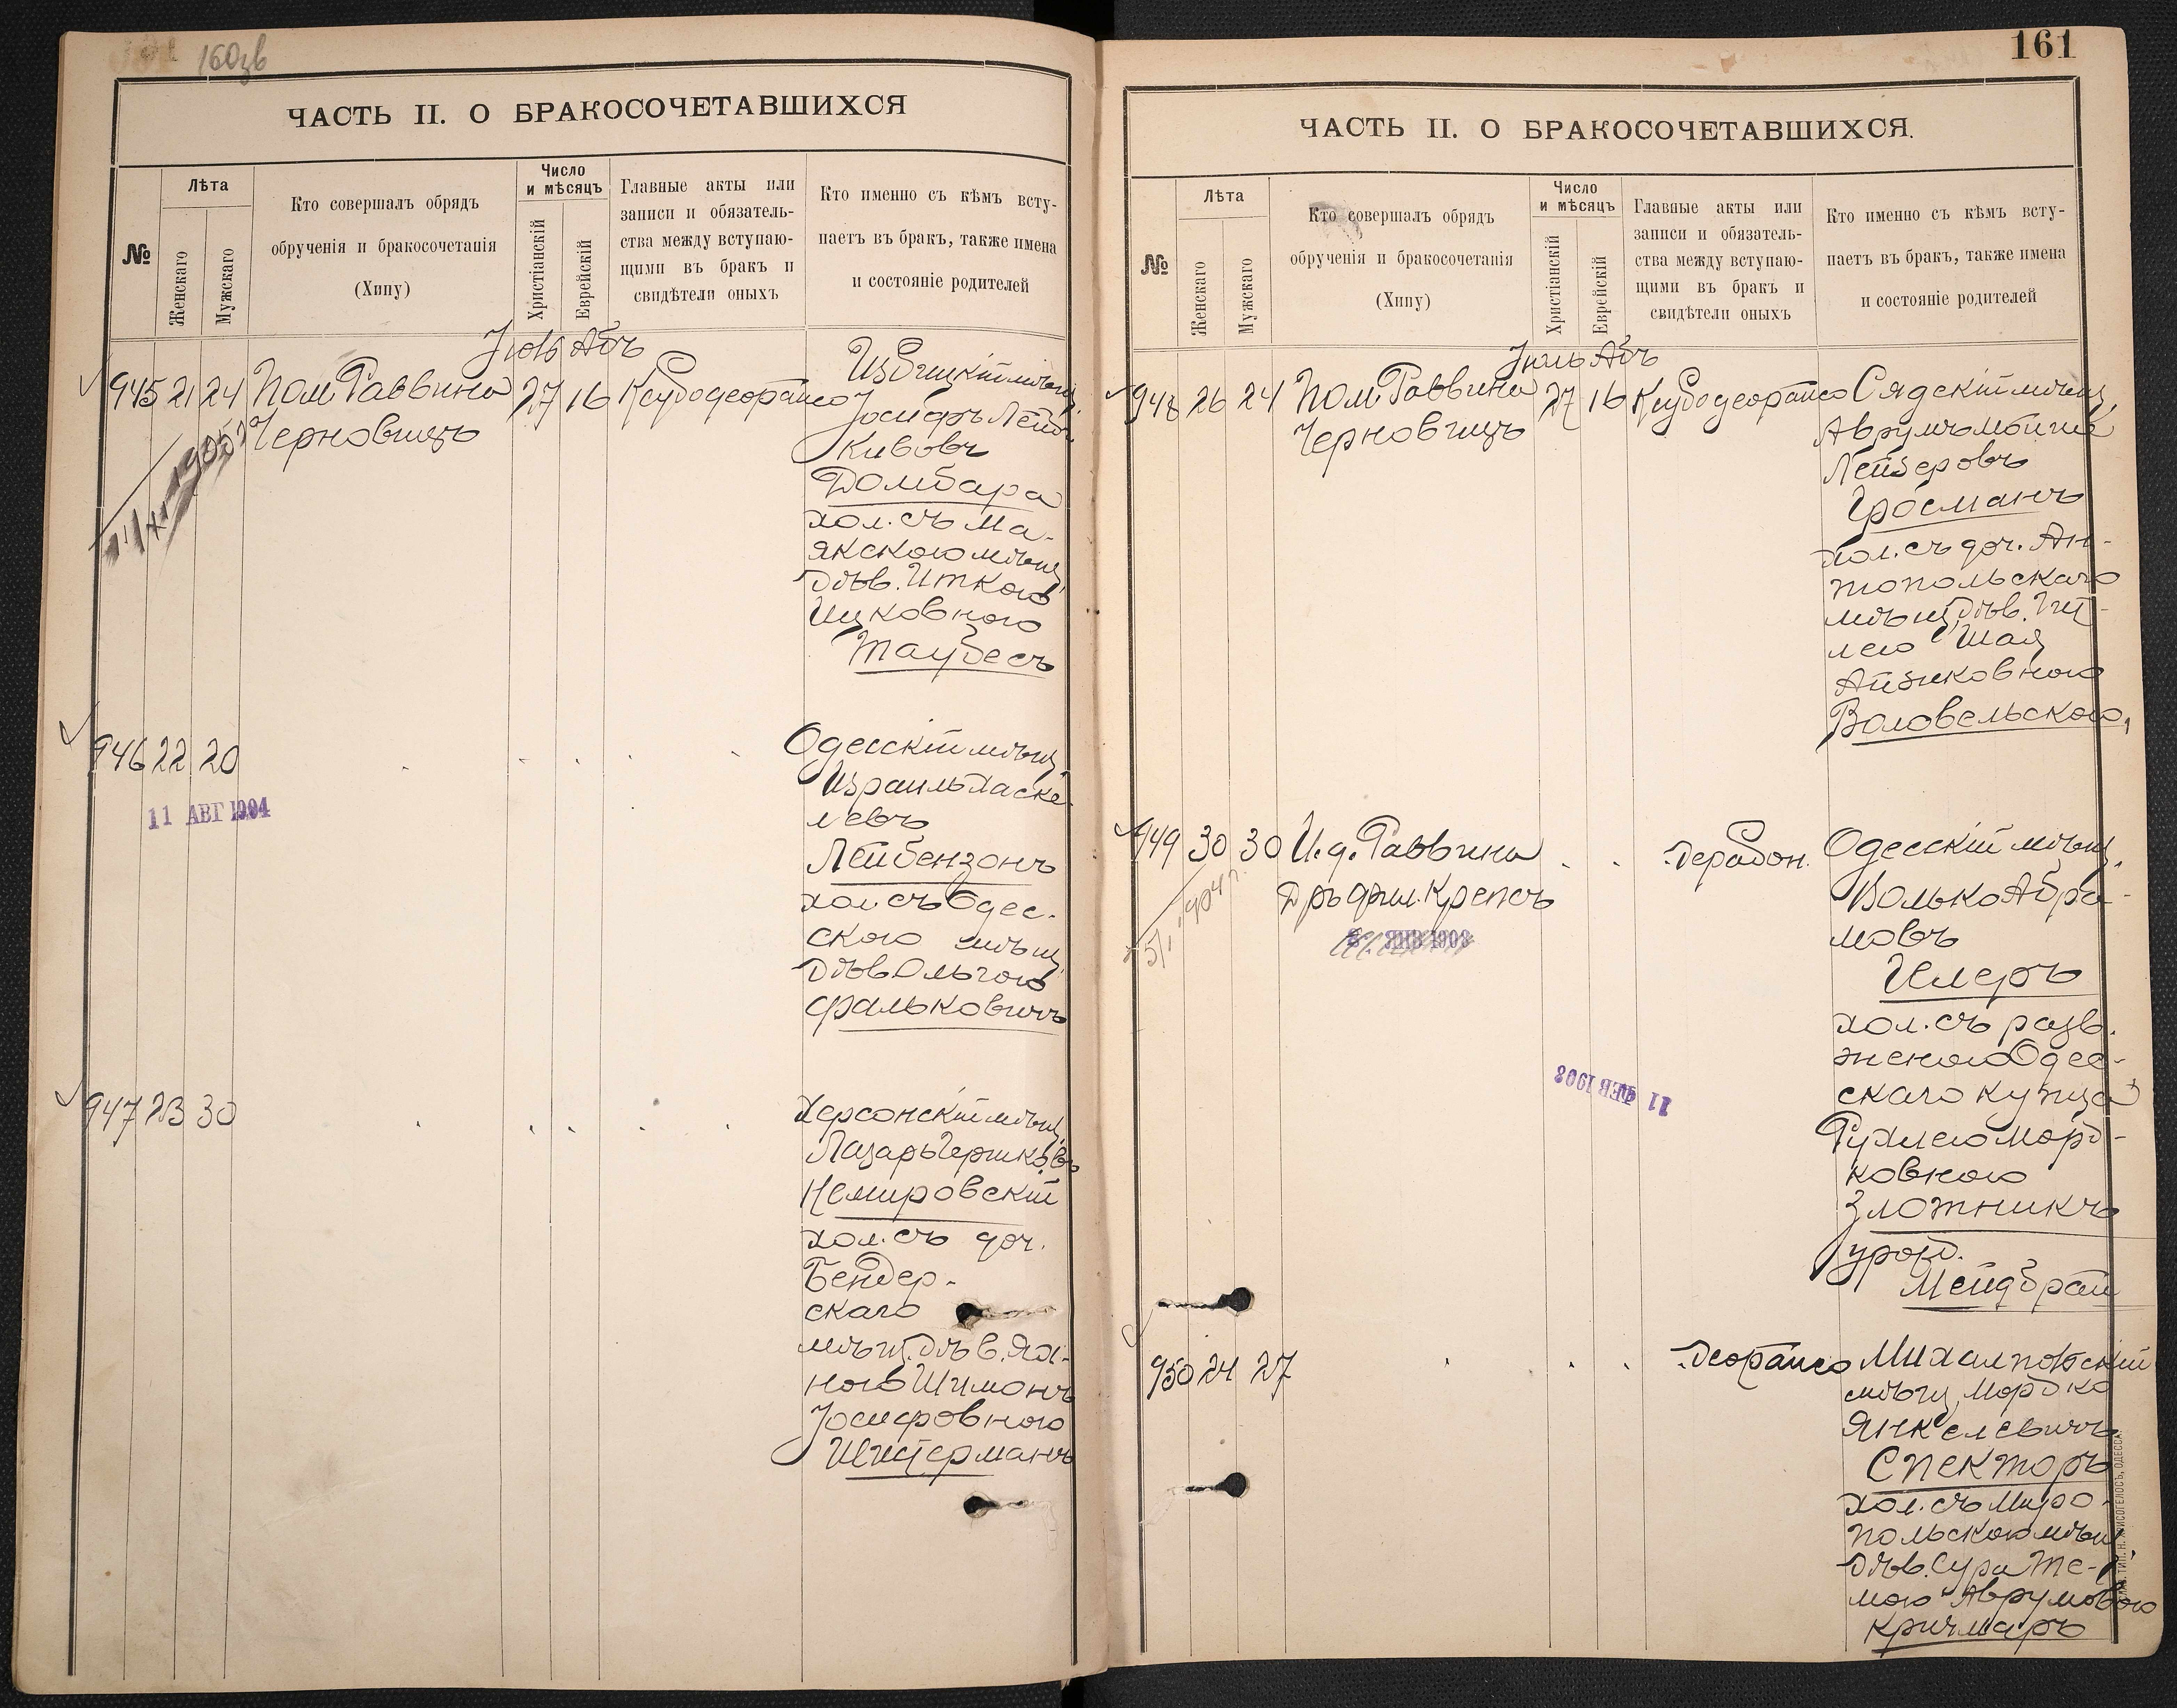 160 зв
ЧАСТЬ II. О БРАКОСОЧЕТАВШИХСЯ
№
Лѣта
Женскаго
Мужскаго
Кто совершалъ обрядъ
обрученія и бракосочетанія
(Хипу)
Число
и мѣсяцъ
Христіанскій
Еврейскій
Главные акты или
записи и обязатель-
ства между вступаю-
щими въ бракъ и
свидѣтели оныхъ
Кто именно съ кѣмъ всту-
паетъ въ бракъ, также имена
и состояніе родителей
Іюль Абъ
945 21 24 Пом. Раввина 27 16
Черновицъ
мѣщ.
Іосифъ Лейб
Кивовъ
Домбара
хол. съ Ма-
якскою мѣщ.
дѣв. Иткою
Ицковною
Таубесъ
946 22 20
11 АВГ 1904
Одесскій мѣщ.
Израиль Хаске-
левъ
Лейбензонъ
хол. съ Одес-
скою мѣщ.
дѣв. Ольгою
Фальковичъ
947 23 30
Херсонскій мѣщ.
Лазарь Гершковъ
Немировскій
хол. съ доч.
Бендер-
скаго
мѣщ. дѣв. Ях-
ною Шимонъ
Іосифовною
Шихерманъ
161
ЧАСТЬ II. О БРАКОСОЧЕТАВШИХСЯ.
№
Лѣта
Женскаго
Мужскаго
Кто совершалъ обрядъ
обрученія и бракосочетанія
(Хипу)
Число
и мѣсяцъ
Христіанскій
Еврейскій
Главные акты или
записи и обязатель-
ства между вступаю-
щими въ бракъ и
свидѣтели оныхъ
Кто именно съ кѣмъ всту-
паетъ въ бракъ, также имена
и состояніе родителей
Іюль Абъ
948 26 24 Пом. Раввина 27 16 Сядскій мѣщ.
Черновицъ
Аврумъ Мойше
Лейзеровъ
Гросманъ
хол. съ доч. Ан-
топольскаго
мѣщ. дѣв. Гит-
лею Шая
Айзиковною
Воловельскою
949 30 30 И. д. Раввина
Дръ фил. Крепсъ
ЯНВ 1908
11 ФЕВ 1908
Одесскій мѣщ.
Волько Абра-
мовъ
Имеръ
хол. съ разв.
женою Одес-
скаго купца
Рухлею Морд-
ковною
Злотникъ
урожд.
Мейдбрай
950 24 27
Михалпольскій
мѣщ. Мордко
Янкелевичъ
Спекторъ
хол. съ Миро-
польскою мѣщ.
дѣв. Сура Те-
мою Аврумовою
Кричмаръ